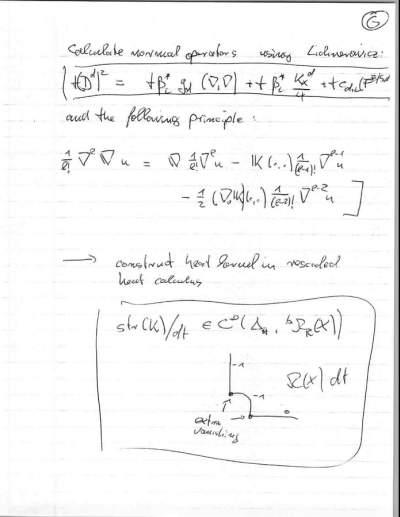 G
Calculate normal operators using Lichnerowicz:
and the following principle:
1/ℓ! ∇^ℓ ∇ u = ∇ 1/ℓ! ∇^ℓ u - K(·,·) 1/(ℓ-1)! ∇^{ℓ-1} u
- 1/2 (∇K)(·,·) 1/(ℓ-2)! ∇^{ℓ-2} u ]
→ construct heat kernel in rescaled
heat calculus
str(K)/dt ∈ C^∞(Δ_H, ^bΩ_R(X))
-1
-1 Ω(X) dt
extra
vanishing